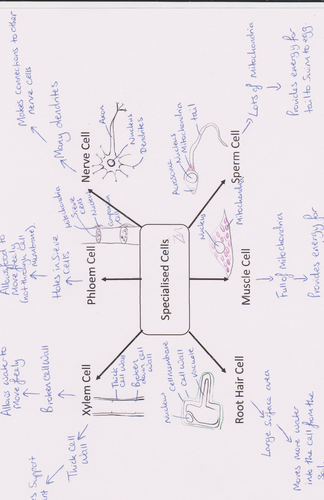 Specialised Cells
Nerve Cell
Axon
Nucleus
Dendrites
Many dendrites
Makes connections to other
nerve cells
Sperm Cell
Acrosome
nucleus
Mitochondria
tail
Lots of Mitochondria
Provides energy for
tail to swim to egg
Muscle Cell
Nucleus
Mitochondria
Full of Mitochondria
Provides energy for
Root Hair Cell
Nuclei
Cell membrane
Cell wall
vacuole
Large Surface area
Moves more water
into the cell from the
Xylem Cell
Thick
Cell wall
Broken
down cell
wall
Thick Cell
Wall
Support
Broken Cell Wall
Allows water to
move freely
Phloem Cell
Mitochondria
Sieve
Cells
Nucleus
Companion
Cell
Holes in Sieve
Cells
Allows food to
move freely
membrane)